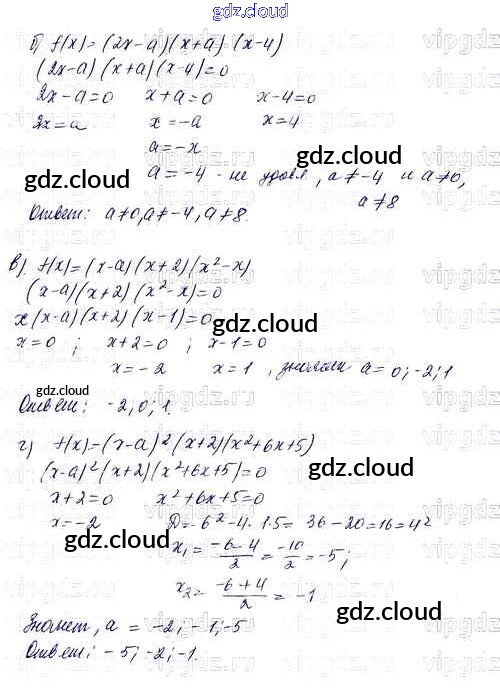 gdz.cloud
б) f(x)=(2x-a)(x+a)·(x-4)
(2x-a)(x+a)(x-4)=0
2x-a=0 x+a=0 x-4=0
2x=a x=-a x=4
a=-x
a=-4 - не удовл, a≠-4 и a≠0,
gdz.cloud
a≠8
Ответ: a≠0, a≠-4, a≠8.
в) f(x)=(x-a)(x+2)(x²-x)
(x-a)(x+2)(x²-x)=0
x(x-a)(x+2)(x-1)=0
x=0; x+2=0; x-1=0
x=-2 x=1, значит a=0;-2;1
Ответ: -2, 0; 1.
г) f(x)=(x-a)²(x+2)(x²+6x+5)
(x-a)²(x+2)(x²+6x+5)=0
x+2=0 x²+6x+5=0
x=-2 D=6²-4·1·5=36-20=16=4²
x₁=(-6-4)/2=-10/2=-5;
x₂=(-6+4)/2=-1
Значит, a=-2;-1;-5
Ответ: -5;-2;-1.